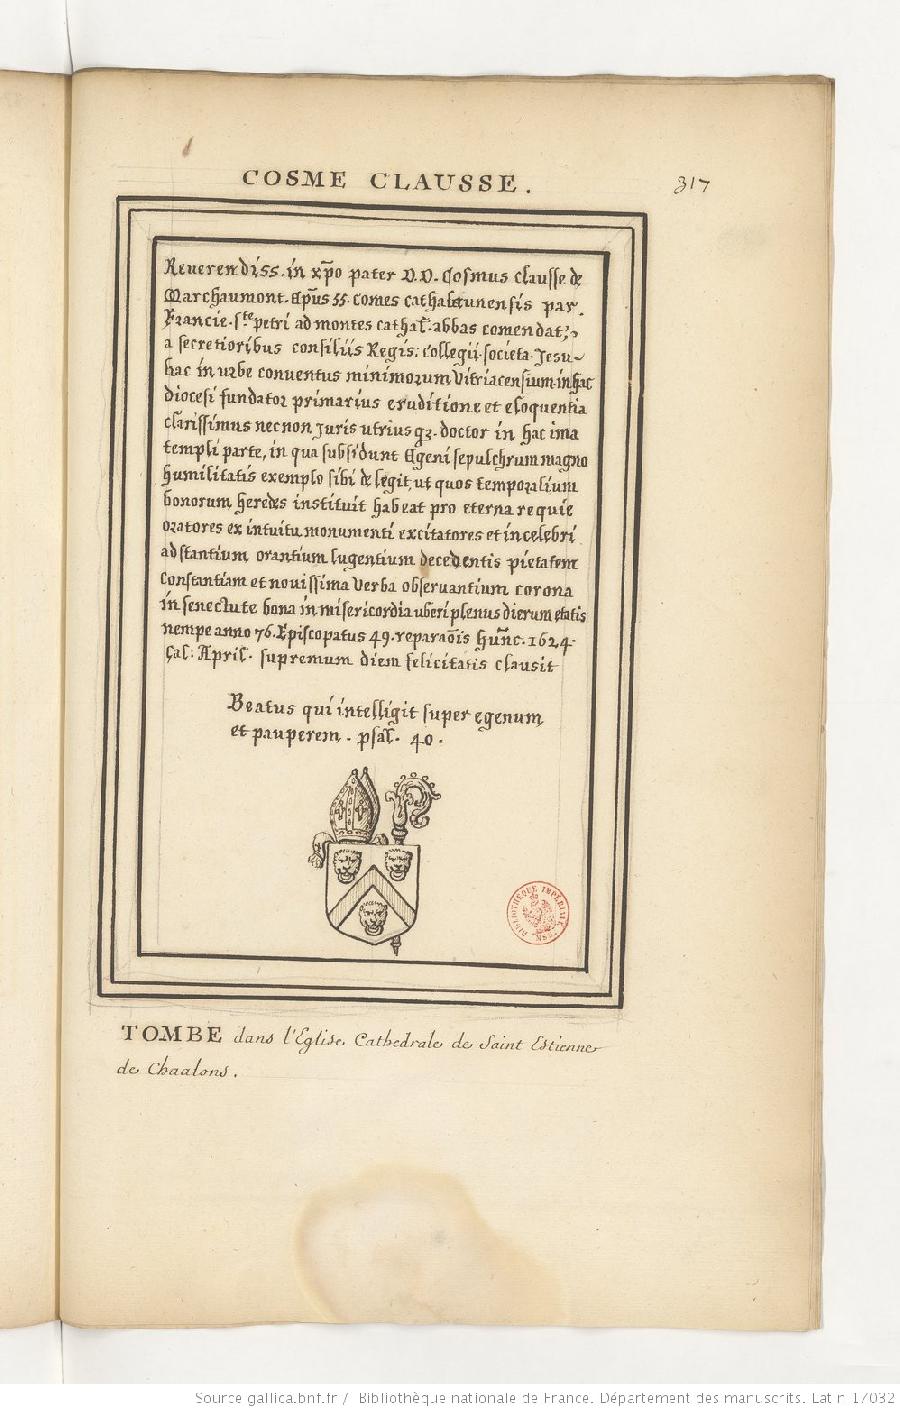 COSME CLAUSSE.
317
Reverendiss. in xp̄o pater D.D. Cosmus clausse de
Marchaumont. Ep̄us 55 comes cathalaunensis par
Francie. Ste petri ad montes cathal. abbas comendat.
a secretioribus consiliis Regis. collegij societa. Jesu
hac in urbe conventus minimorum Vitriacensium. in hac
diocesi fundator primarius eruditione et eloquentia
clarissimus necnon Juris utriusq3. doctor in hac ima
templi parte, in qua subsidunt Egeni sepulchrum magno
humilitatis exemplo sibi delegit, ut quos temporalium
bonorum heredes instituit habeat pro eterna requie
oratores ex intuitu monumenti excitatores et in celebri
adstantium orantium lugentium decedentis pietatem
constantiam et novissima verba observantium corona
in senectute bona in misericordia uberi plenus dierum etatis
nempe anno 76. Episcopatus 49. reparaōis hum̄. 1624
Cal. April. supremum diem felicitatis clausit
Beatus qui intelligit super egenum
et pauperem. psal. 40.
BIBLIOTHÈQUE IMPÉRIALE
TOMBE dans l'Eglise Cathedrale de Saint Estienne
de Chaalons.
Source gallica.bnf.fr / Bibliothèque nationale de France. Département des manuscrits. Latin 17032